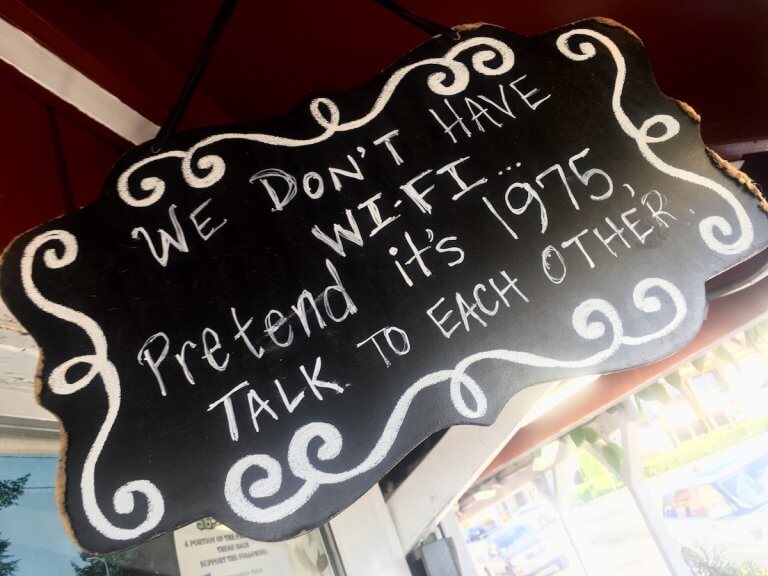 WE DON'T HAVE
WI-FI...
Pretend it's 1975,
TALK TO EACH OTHER.
A PORTION OF THE
THESE BAGS
SUPPORT THE FOLLOWING: